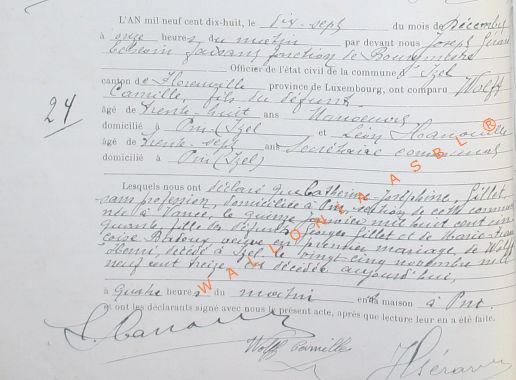 L'AN mil neuf cent dix-huit, le dix-sept du mois de Décembre
à onze heures du matin par devant nous Joseph Gérard
Echevin faisant fonction de Bourgmestre
Officier de l'état civil de la commune d'Izel
canton de Florenville province de Luxembourg, ont comparu Wolff
Camille, fils du défunt
24
âgé de trente-huit ans
domicilié à Pin (Izel) et Léon Hanouille
âgé de trente-sept ans Secrétaire communal
domicilié à Pin (Izel)
Lesquels nous ont déclaré que Catherine Joséphine Gillet
sans profession, domiciliée à Pin, section de cette commune
née à Vance, le quinze janvier mil huit cent cin
quante, fille des défunts Georges Gillet et de Marie-Fran
çoise veuve en premier mariage de Wolff
Henri, décédé à Izel le vingt-cinq novembre mil
neuf cent treize, est décédée aujourd'hui,
à quatre heures du matin en sa maison à Pin.
et ont les déclarants signé avec nous le présent acte, après que lecture leur en a été faite.
Wolff Camille
J Gérard
WALLONIA ASBL ®